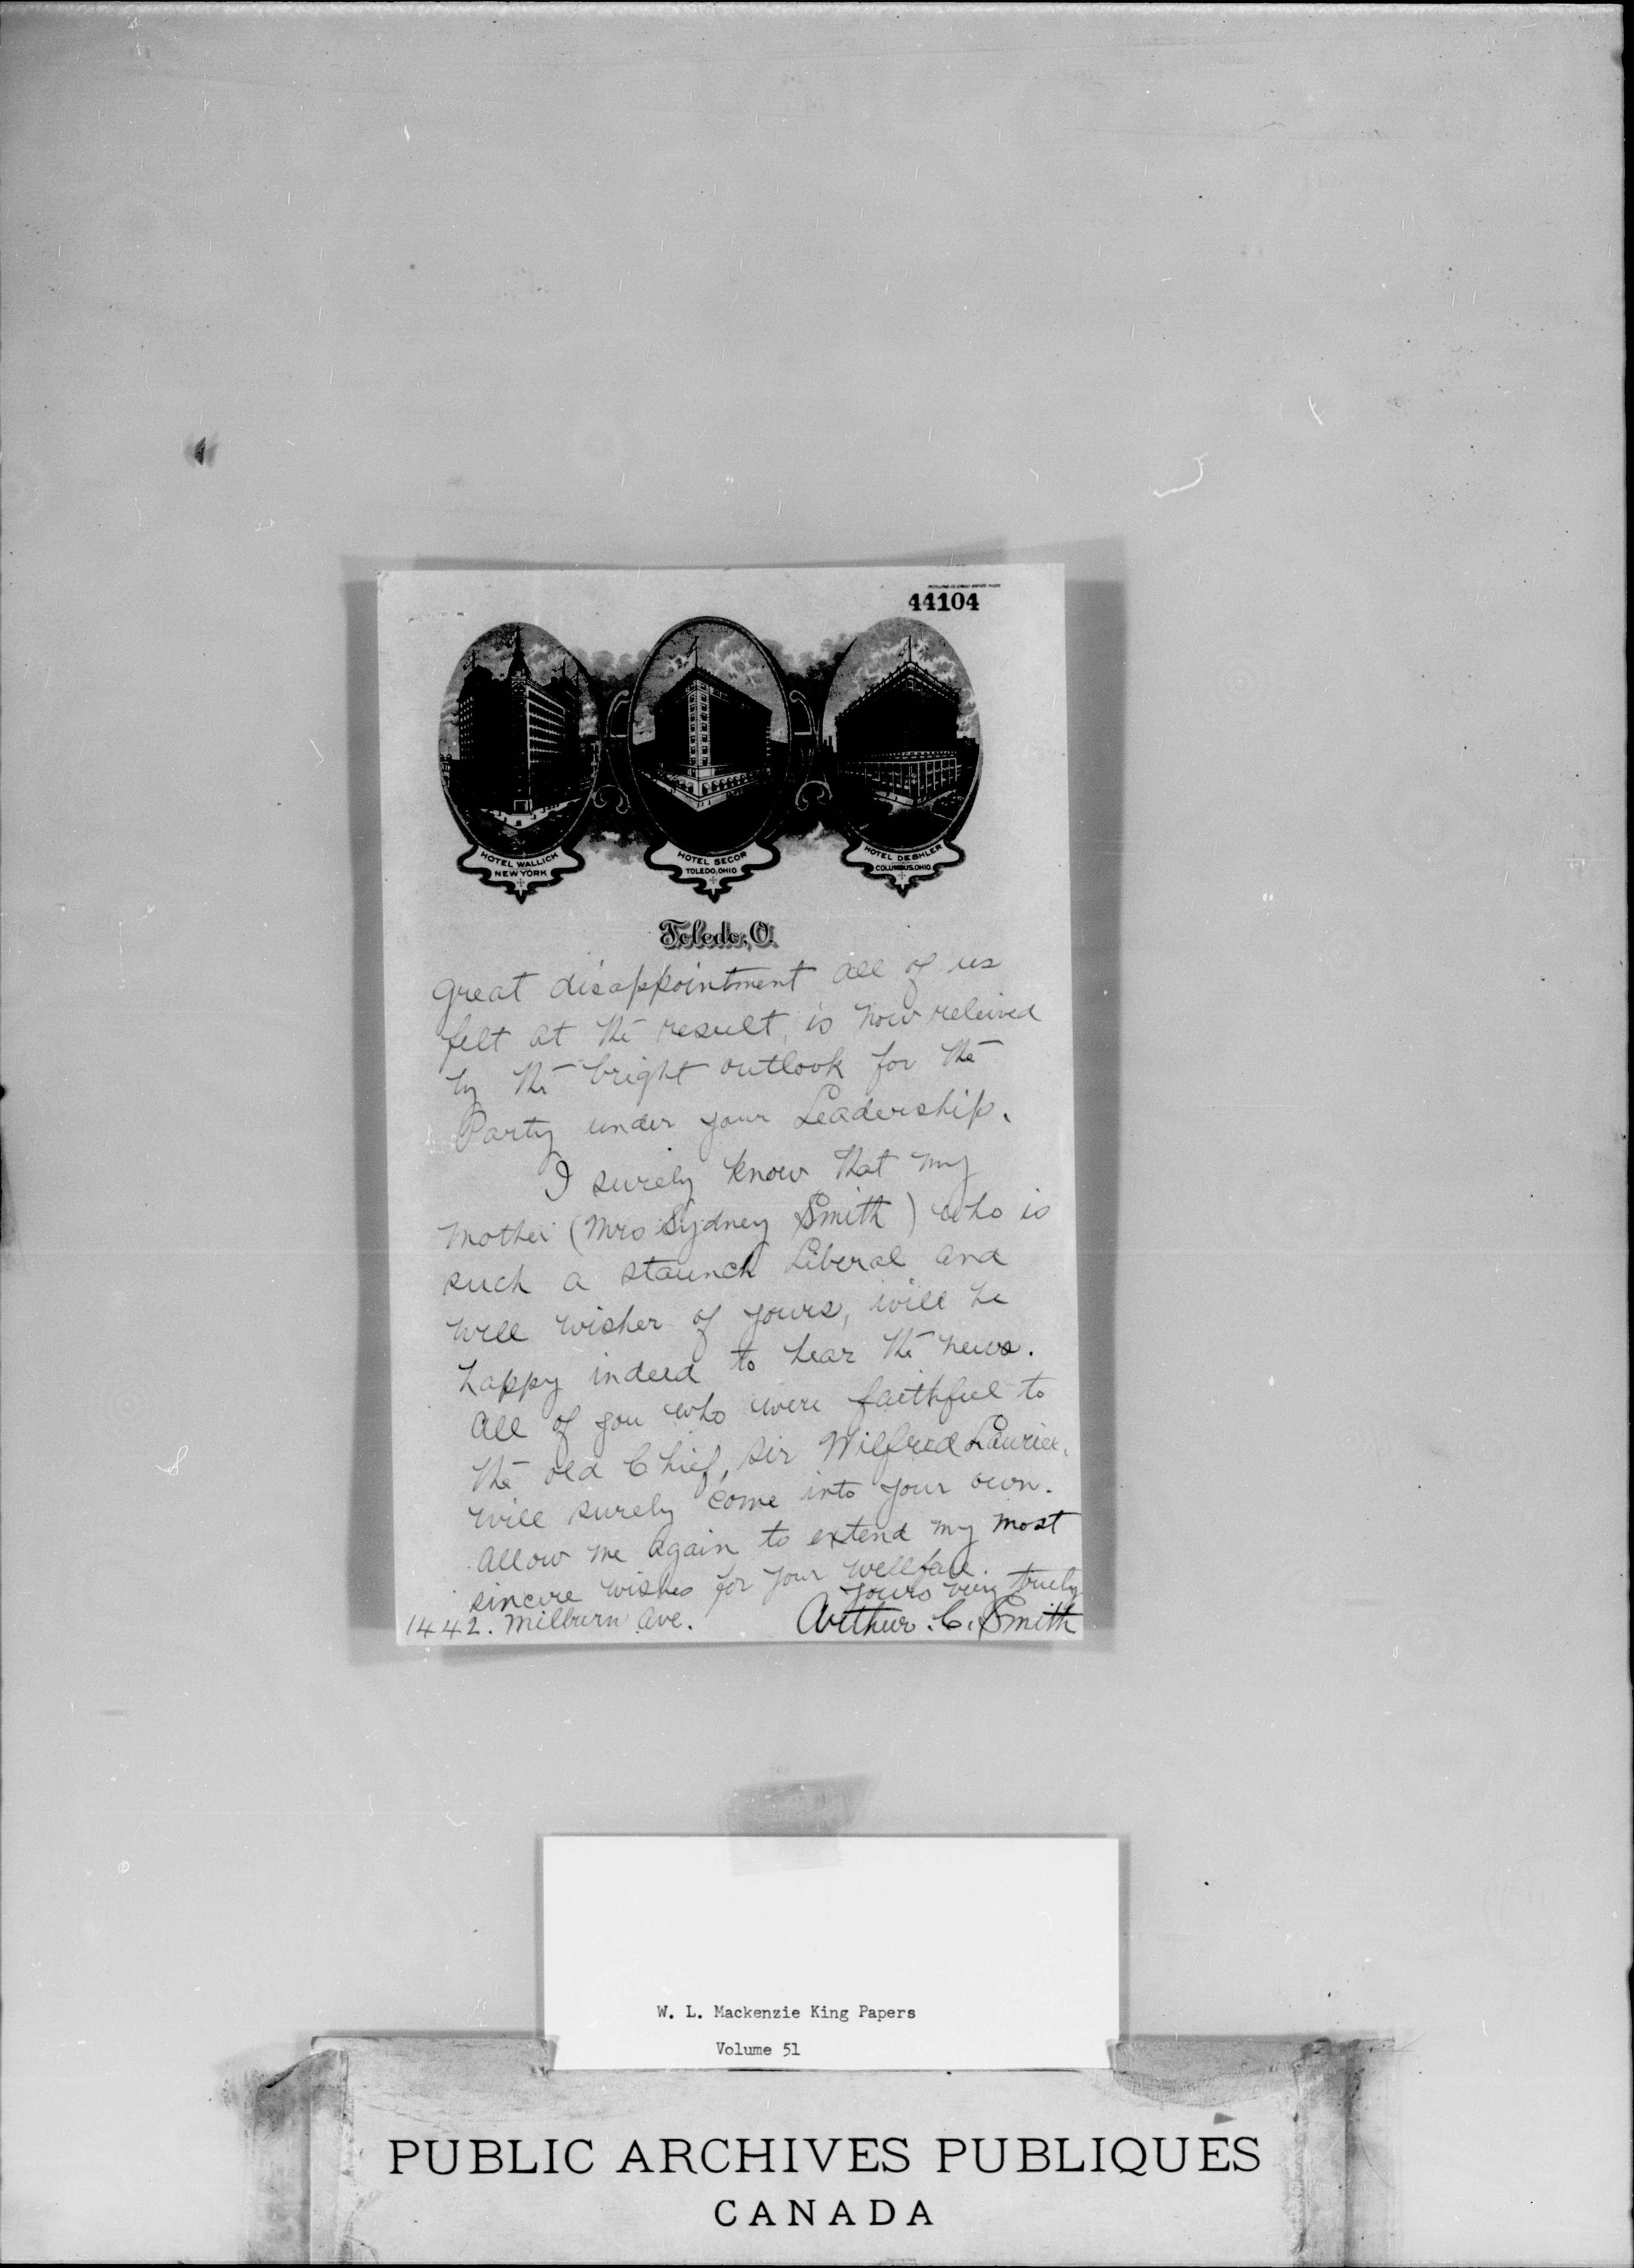 44104
HOTEL WALLICK
NEW YORK
HOTEL SECOR
TOLEDO, OHIO
HOTEL DESHLER
COLUMBUS, OHIO
Toledo, O.
great disappointment all of us
felt at the result, is now releived
by the bright outlook for the
Party under your Leadership.
I surely know that my
mother (Mrs Sydney Smith) who is
such a staunch Liberal and
well wisher of yours, will be
happy indeed to hear the news.
All of you who were faithful to
the old Chief, Sir Wilfred Laurier,
will surely come into your own.
Allow me again to extend my most
sincere wishes for your wellfare.
Yours very truely
Arthur. C. Smith
1442. Milburn Ave.
W. L. Mackenzie King Papers
Volume 51
PUBLIC ARCHIVES PUBLIQUES
CANADA